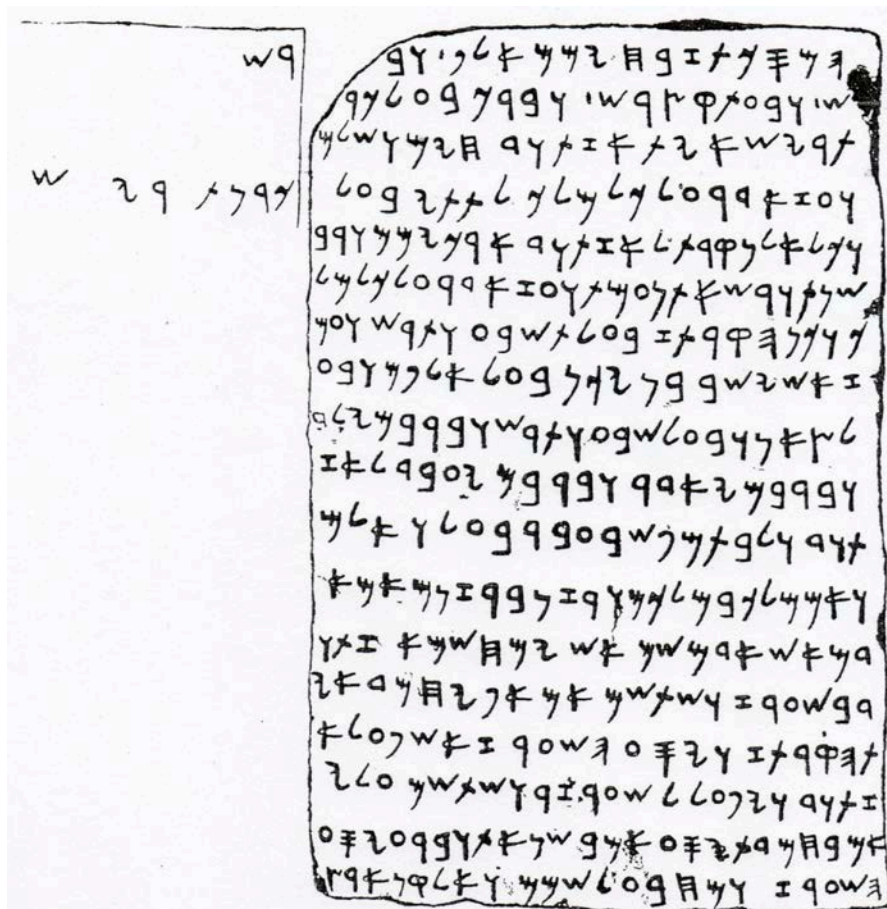 𐤄𐤌𐤎𐤊𐤕𐤆𐤁𐤇𐤉𐤌𐤌𐤀𐤋𐤐𐤖𐤅𐤁 𐤓𐤔
𐤔𐤖𐤅𐤁𐤏𐤕𐤒𐤑𐤓𐤔𐤖𐤅𐤁𐤓𐤊𐤁𐤏𐤋𐤊𐤓
𐤕𐤓𐤉𐤔𐤀𐤉𐤕𐤀𐤆𐤕𐤅𐤃𐤇𐤉𐤌𐤅𐤔𐤋𐤌
𐤅𐤏𐤆𐤀𐤃𐤓𐤏𐤋𐤊𐤋𐤌𐤋𐤊𐤋𐤕𐤕𐤉𐤁𐤏𐤋 𐤊𐤓𐤍𐤕𐤓𐤉𐤔
𐤅𐤊𐤋𐤀𐤋𐤍𐤒𐤓𐤕𐤋𐤀𐤆𐤕𐤅𐤃𐤀𐤓𐤊𐤉𐤌𐤌𐤅𐤓𐤁
𐤔𐤍𐤕𐤅𐤓𐤔𐤀𐤕𐤍𐤏𐤌𐤕𐤅𐤏𐤆𐤀𐤃𐤓𐤏𐤋𐤊𐤋𐤌𐤋
𐤊𐤅𐤊𐤍𐤄𐤒𐤓𐤕𐤆𐤁𐤏𐤋𐤕𐤔𐤁𐤏𐤅𐤕𐤓𐤔𐤅𐤏𐤌
𐤆𐤀𐤔𐤉𐤔𐤁𐤁𐤍𐤉𐤊𐤍𐤁𐤏𐤋𐤀𐤋𐤐𐤌𐤅𐤁𐤏
𐤋𐤑𐤀𐤍𐤅𐤁𐤏𐤋𐤔𐤁𐤏𐤅𐤕𐤓𐤔𐤅𐤁𐤓𐤁𐤌𐤉𐤋𐤃
𐤅𐤁𐤓𐤁𐤌𐤉𐤀𐤃𐤓𐤅𐤁𐤓𐤁𐤌𐤉𐤏𐤁𐤃𐤋𐤀𐤆
𐤕𐤅𐤃𐤅𐤋𐤁𐤕𐤌𐤐𐤔𐤁𐤏𐤁𐤓𐤁𐤏𐤋𐤅𐤀𐤋𐤌
𐤅𐤀𐤌𐤌𐤋𐤊𐤁𐤌𐤋𐤊𐤌𐤅𐤓𐤆𐤍𐤁𐤓𐤆𐤍𐤌𐤀𐤌𐤀
𐤃𐤌𐤀𐤔𐤀𐤃𐤌𐤔𐤌𐤀𐤔𐤉𐤌𐤇𐤔𐤌𐤀𐤆𐤕𐤅
𐤃𐤁𐤔𐤏𐤓𐤆𐤅𐤔𐤕𐤔𐤌𐤀𐤌𐤀𐤐𐤉𐤇𐤌𐤃𐤀𐤉
𐤕𐤄𐤒𐤓𐤕𐤆𐤅𐤉𐤎𐤏𐤄𐤔𐤏𐤓𐤆𐤀𐤔𐤐𐤏𐤋𐤀
𐤆𐤕𐤅𐤃𐤅𐤉𐤐𐤏𐤋𐤋𐤔𐤏𐤓𐤆𐤓𐤅𐤔𐤕𐤔𐤌𐤏𐤋𐤉
𐤀𐤌𐤁𐤇𐤌𐤃𐤕𐤉𐤎𐤏𐤀𐤌𐤁𐤔𐤍𐤀𐤕𐤅𐤁𐤓𐤏𐤉𐤎𐤏
𐤄𐤔𐤏𐤓𐤆𐤅𐤌𐤇𐤁𐤏𐤋𐤔𐤌𐤌𐤅𐤀𐤋𐤒𐤍𐤀𐤓𐤑